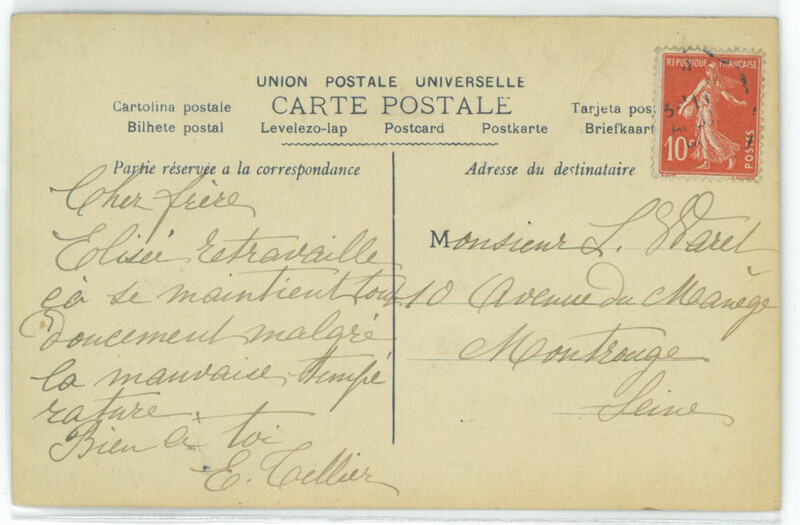 UNION POSTALE UNIVERSELLE
CARTE POSTALE
Cartolina postale
Tarjeta pos
Bilhete postal Levelezo-lap Postcard Postkarte Briefkaart
REPUBLIQUE FRANÇAISE
10
POSTES
Partie réservée a la correspondance
Cher frère
Elisée retravaille
çà se maintient tout
doucement malgré
la mauvaise tempé
rature.
Bien à toi
E. Tellier
Adresse du destinataire
Monsieur L. Waret
10 Avenue du Manège
Montrouge
Seine